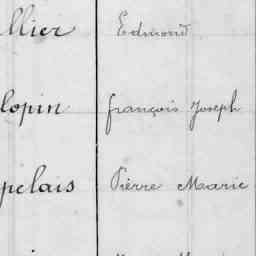 llier Edmond
lopin françois Joseph
pelais Pierre Marie